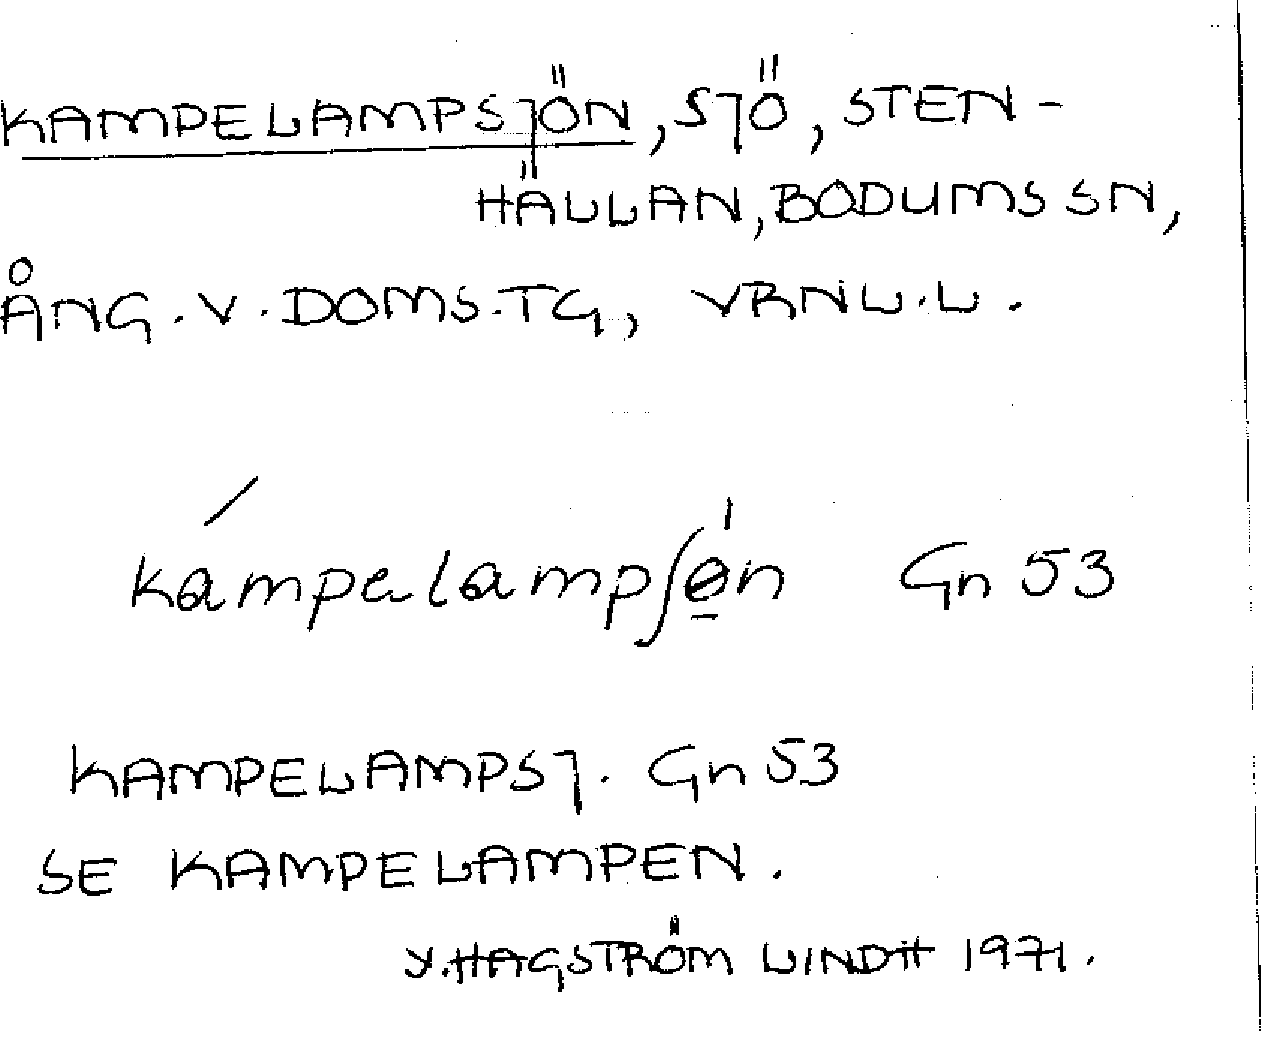 KAMPELAMPSJÖN, SJÖ, STEN-
HÄLLAN, BODUMS SN,
ÅNG. V. DOMS. TG, VRNL.L.
kámpelampʃǿ̱n Gn 53
KAMPELAMPSJ. Gn 53
SE KAMPELAMPEN.
Y. HAGSTRÖM LINDH 1971.